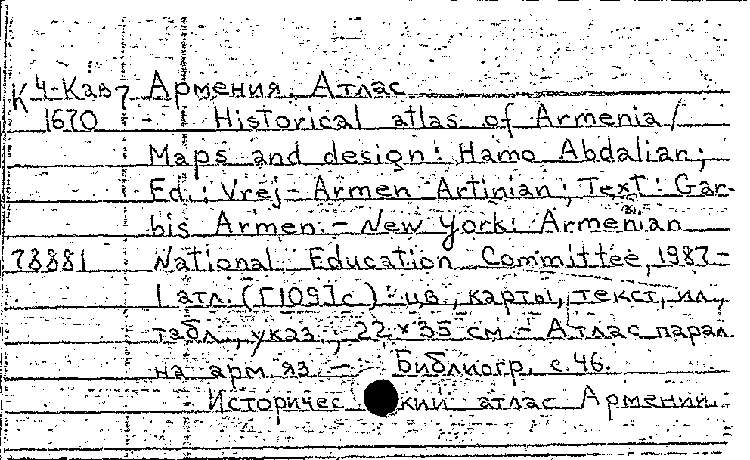 К 4-Кав7 Армения. Атлас
1670 - Historical atlas of Armenia /
Maps and design: Hamo Abdalian;
Ed.: Vrej-Armen Artinian; Text: Gar-
bis Armen. - New York: Armenian
78881 National Education Committee, 1987 -
1 атл. ( с): цв., карты, текст, ил.,
табл., указ.; 22 × 35 см. - Атлас парал.
на арм. яз. - Библиогр. с. 46.
Историчес кий атлас Армении.